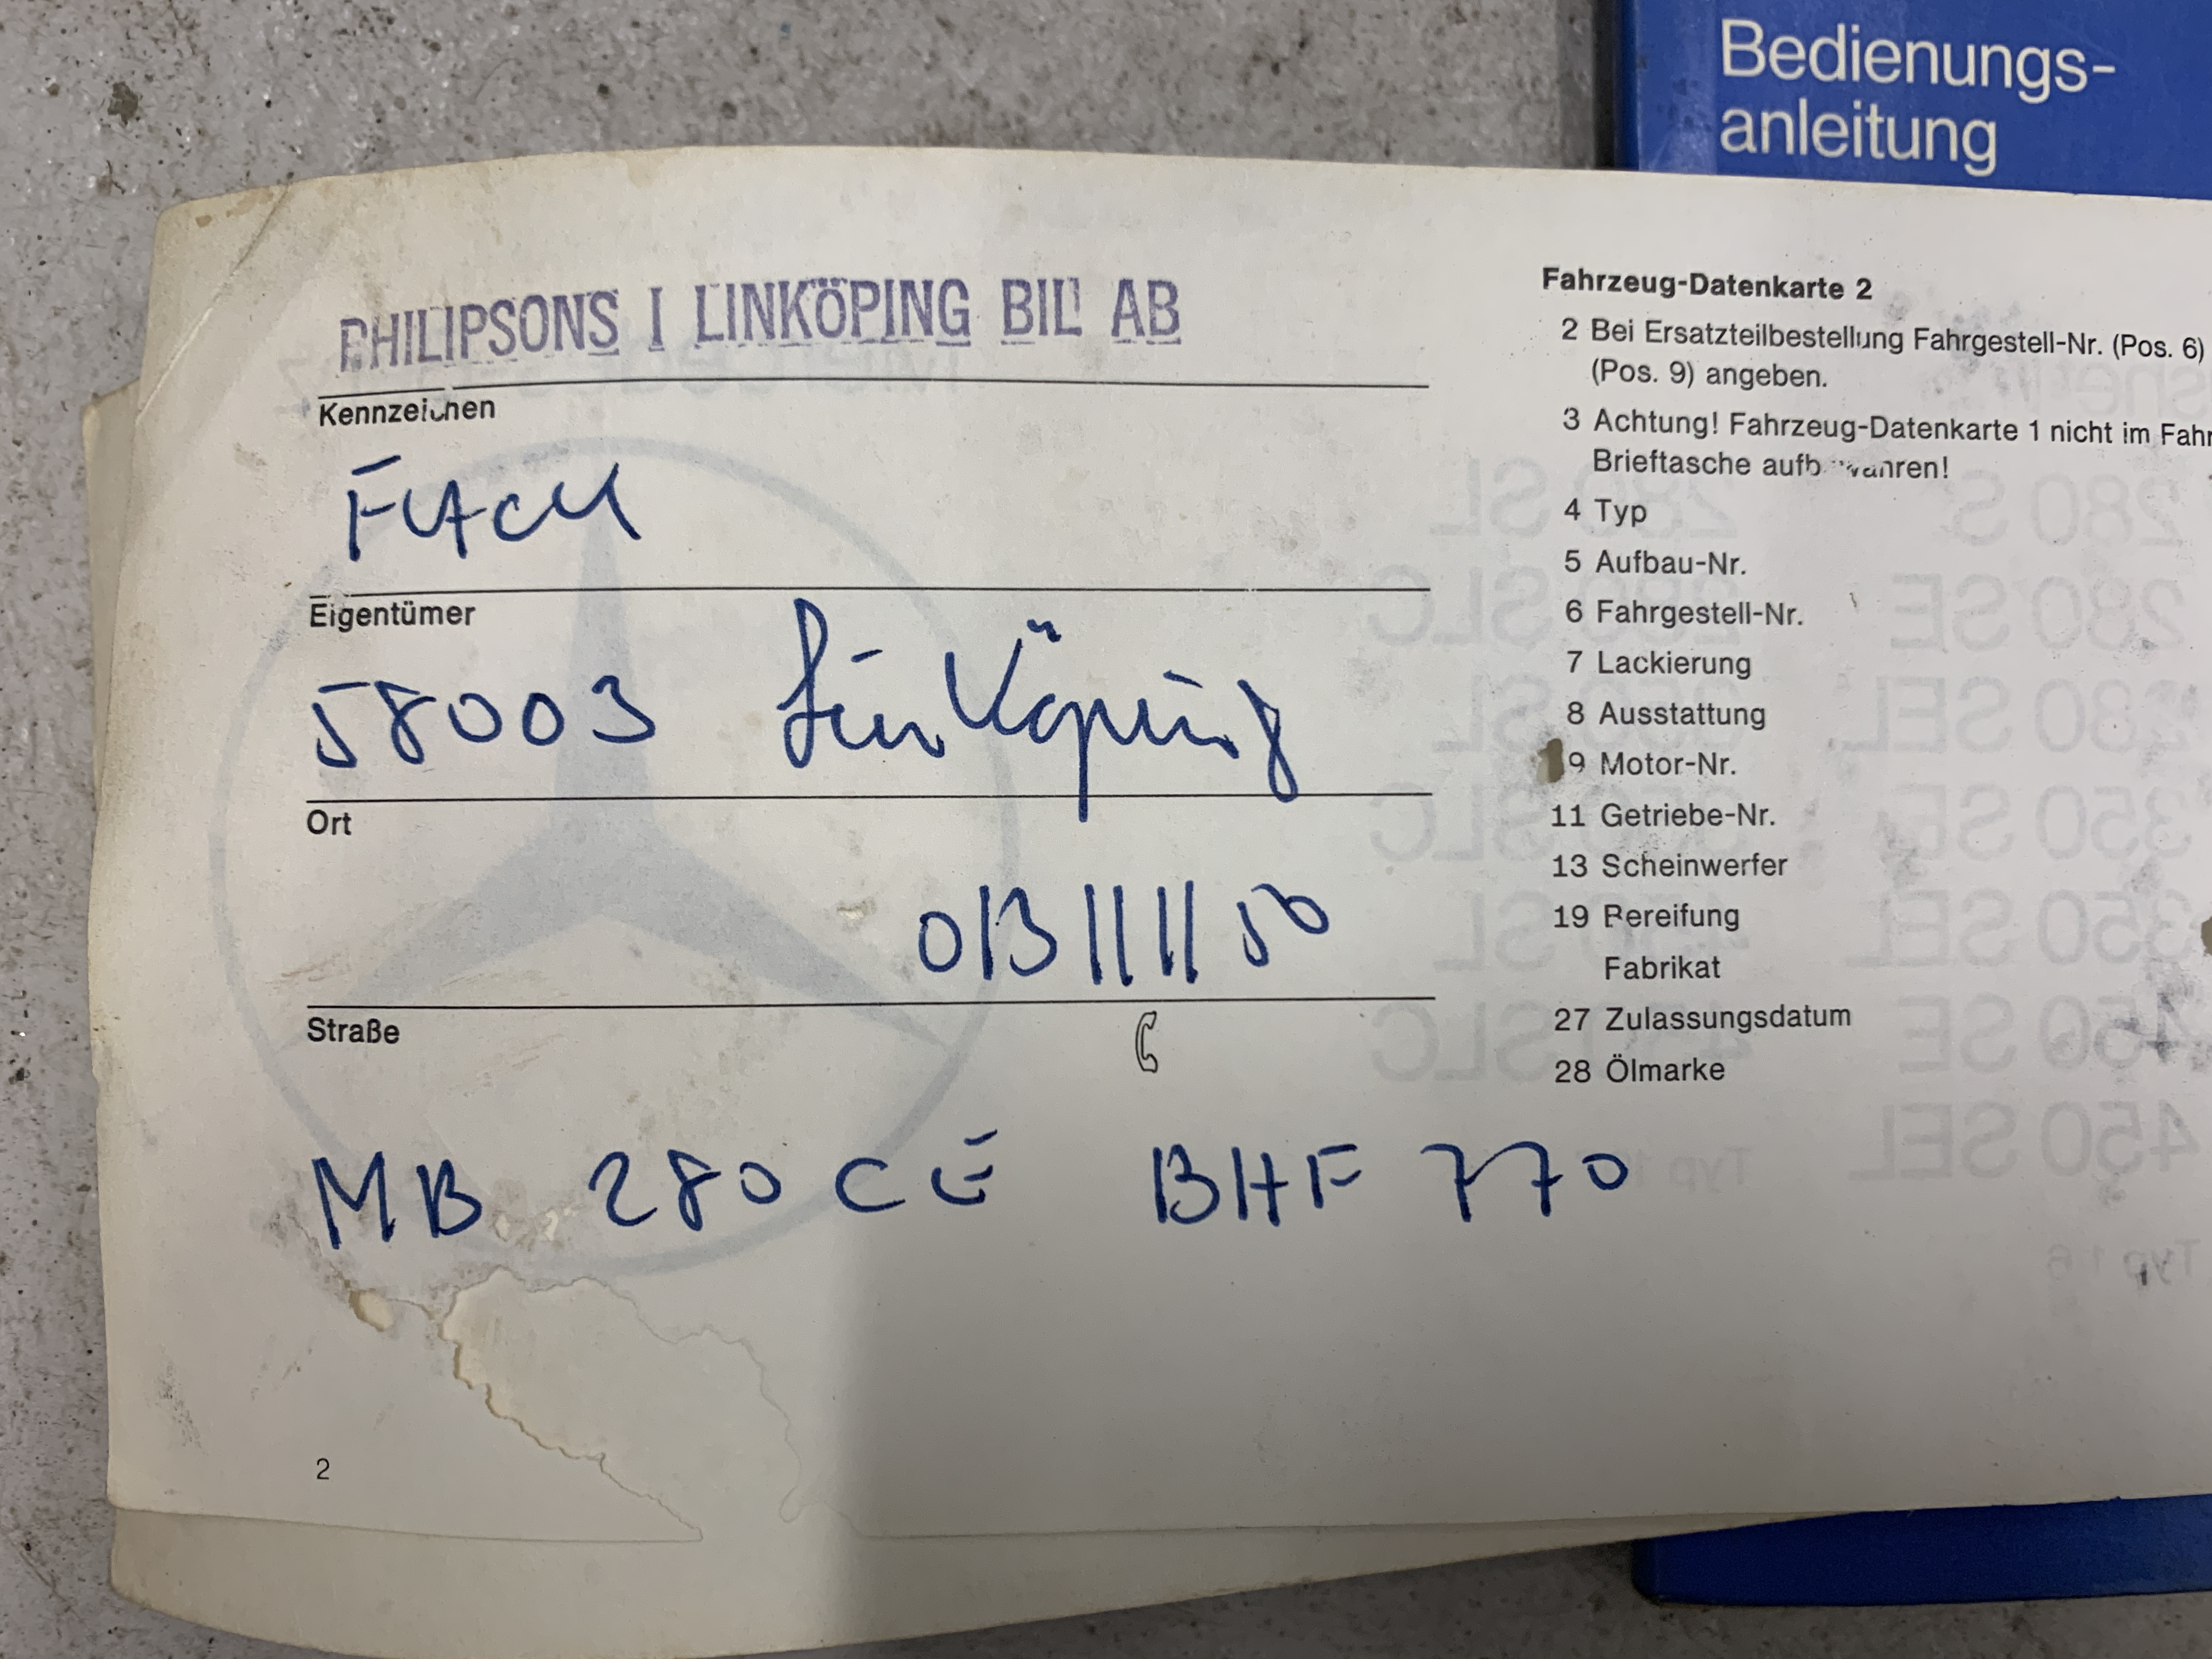 Bedienungs-
anleitung
PHILIPSONS I LINKÖPING BIL AB
Kennzeichen
Fack
Eigentümer
58003 Linköping
Ort
013 111150
Straße
MB 280 CE BHF 770
2
Fahrzeug-Datenkarte 2
2 Bei Ersatzteilbestellung Fahrgestell-Nr. (Pos. 6)
(Pos. 9) angeben.
3 Achtung! Fahrzeug-Datenkarte 1 nicht im Fahr
Brieftasche aufbewahren!
4 Typ
5 Aufbau-Nr.
6 Fahrgestell-Nr.
7 Lackierung
8 Ausstattung
9 Motor-Nr.
11 Getriebe-Nr.
13 Scheinwerfer
19 Bereifung
Fabrikat
27 Zulassungsdatum
28 Ölmarke